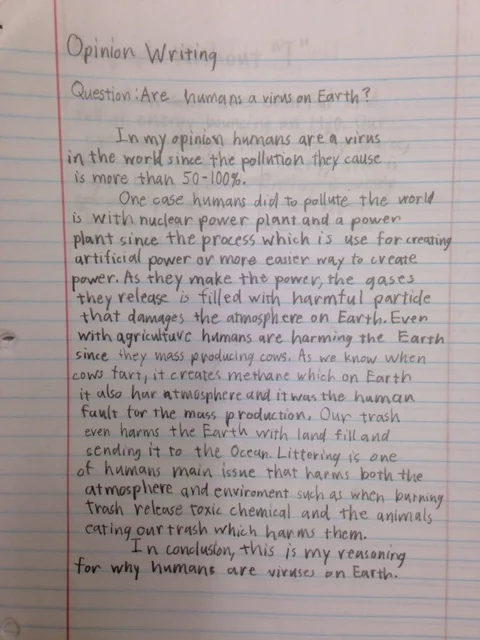 Opinion Writing
Question: Are humans a virus on Earth?
In my opinion humans are a virus
in the world since the pollution they cause
is more than 50-100%.
One case humans did to pollute the world
is with nuclear power plant and a power
plant since the process which is use for creating
artificial power or more easier way to create
power. As they make the power, the gases
they release is filled with harmful particle
that damages the atmosphere on Earth. Even
with agriculture humans are harming the Earth
since they mass producing cows. As we know when
cows fart, it creates methane which on Earth
it also har atmosphere and it was the human
fault for the mass production. Our trash
even harms the Earth with land fill and
sending it to the Ocean. Littering is one
of humans main issue that harms both the
atmosphere and enviroment such as when burning
trash release toxic chemical and the animals
eating our trash which harms them.
In conclusion, this is my reasoning
for why humans are viruses on Earth.